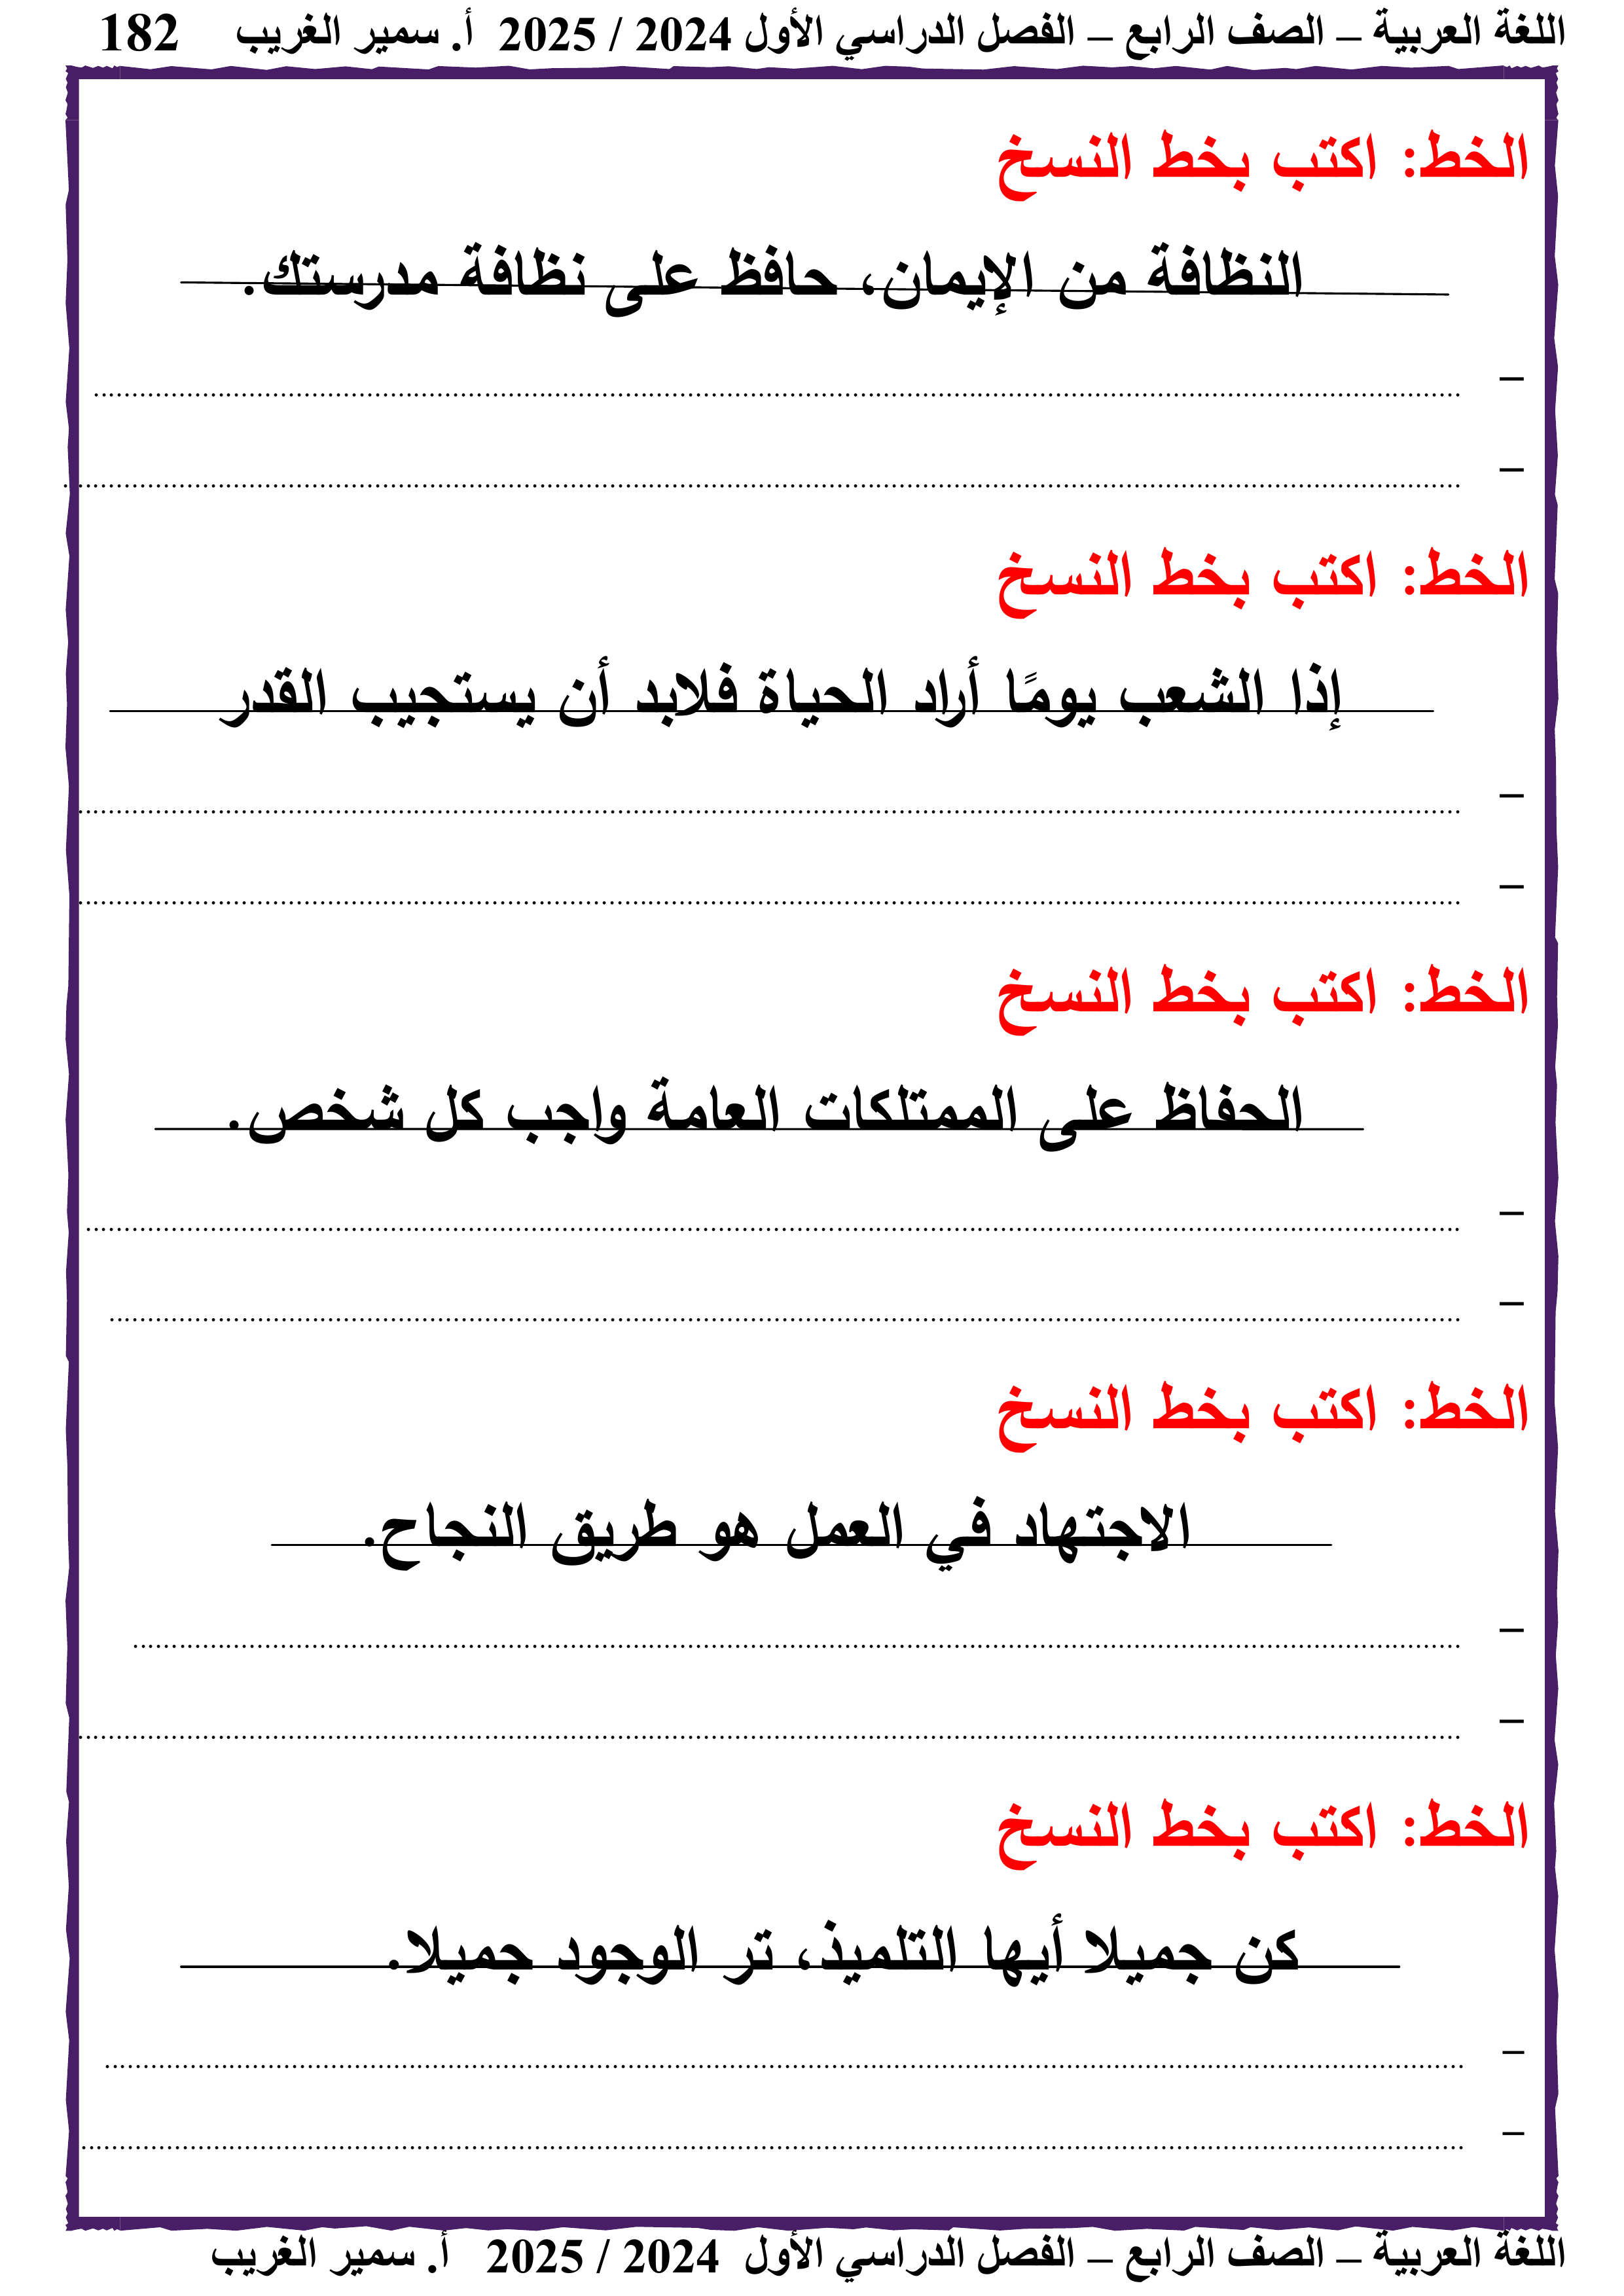 اللغة العربية – الصف الرابع – الفصل الدراسي الأول 2024 / 2025 أ. سمير الغريب 182
الخط: اكتب بخط النسخ
النظافة من الإيمان، حافظ على نظافة مدرستك.
–
–
الخط: اكتب بخط النسخ
إذا الشعب يومًا أراد الحياة فلابد أن يستجيب القدر
–
–
الخط: اكتب بخط النسخ
الحفاظ على الممتلكات العامة واجب كل شخص.
–
–
الخط: اكتب بخط النسخ
الاجتهاد في العمل هو طريق النجاح.
–
–
الخط: اكتب بخط النسخ
كن جميلا أيها التلميذ، تر الوجود جميلا.
–
–
اللغة العربية – الصف الرابع – الفصل الدراسي الأول 2024 / 2025 أ. سمير الغريب